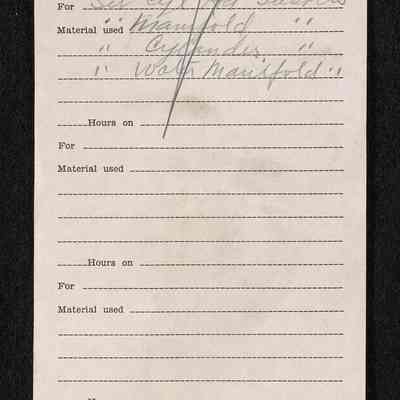 For Set Cyl
Material used " Manifold "
" Cylinder "
" Water Manifold "
Hours on
For
Material used
Hours on
For
Material used